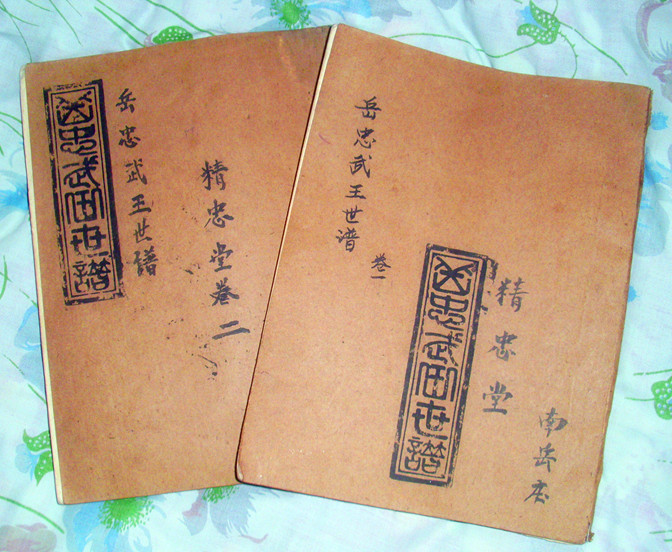 岳忠武王世譜
岳忠武王世譜
精忠堂卷二
岳忠武王世谱
卷一
岳忠武王世譜
精忠堂
南岳庄